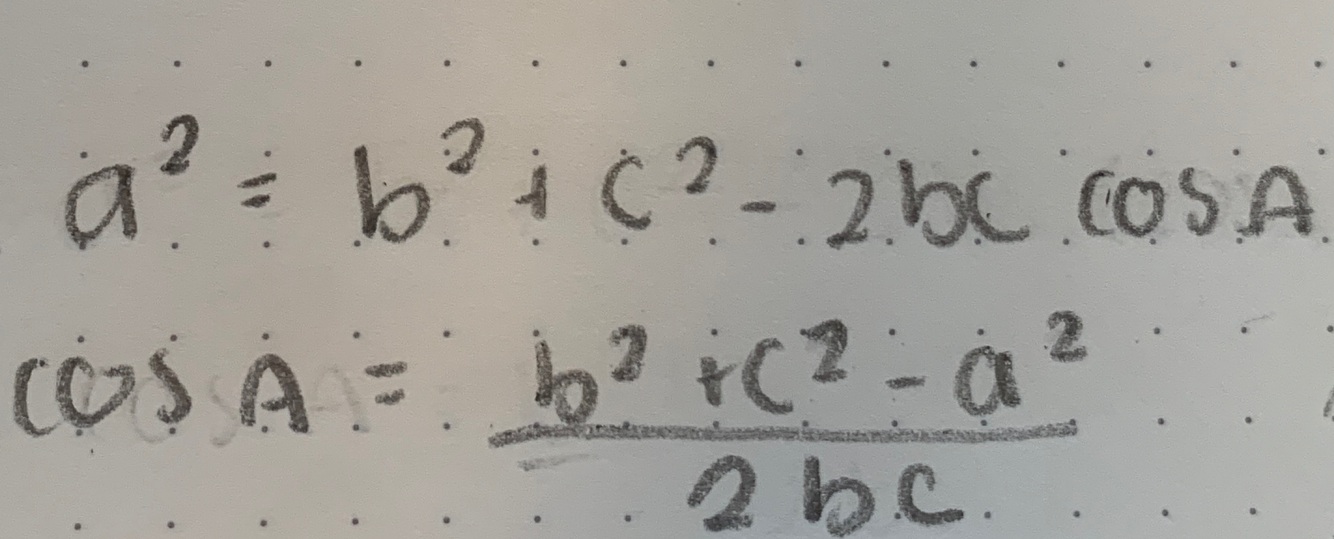 a² = b² + c² - 2bc cos A
cos A = (b² + c² - a²) / 2bc